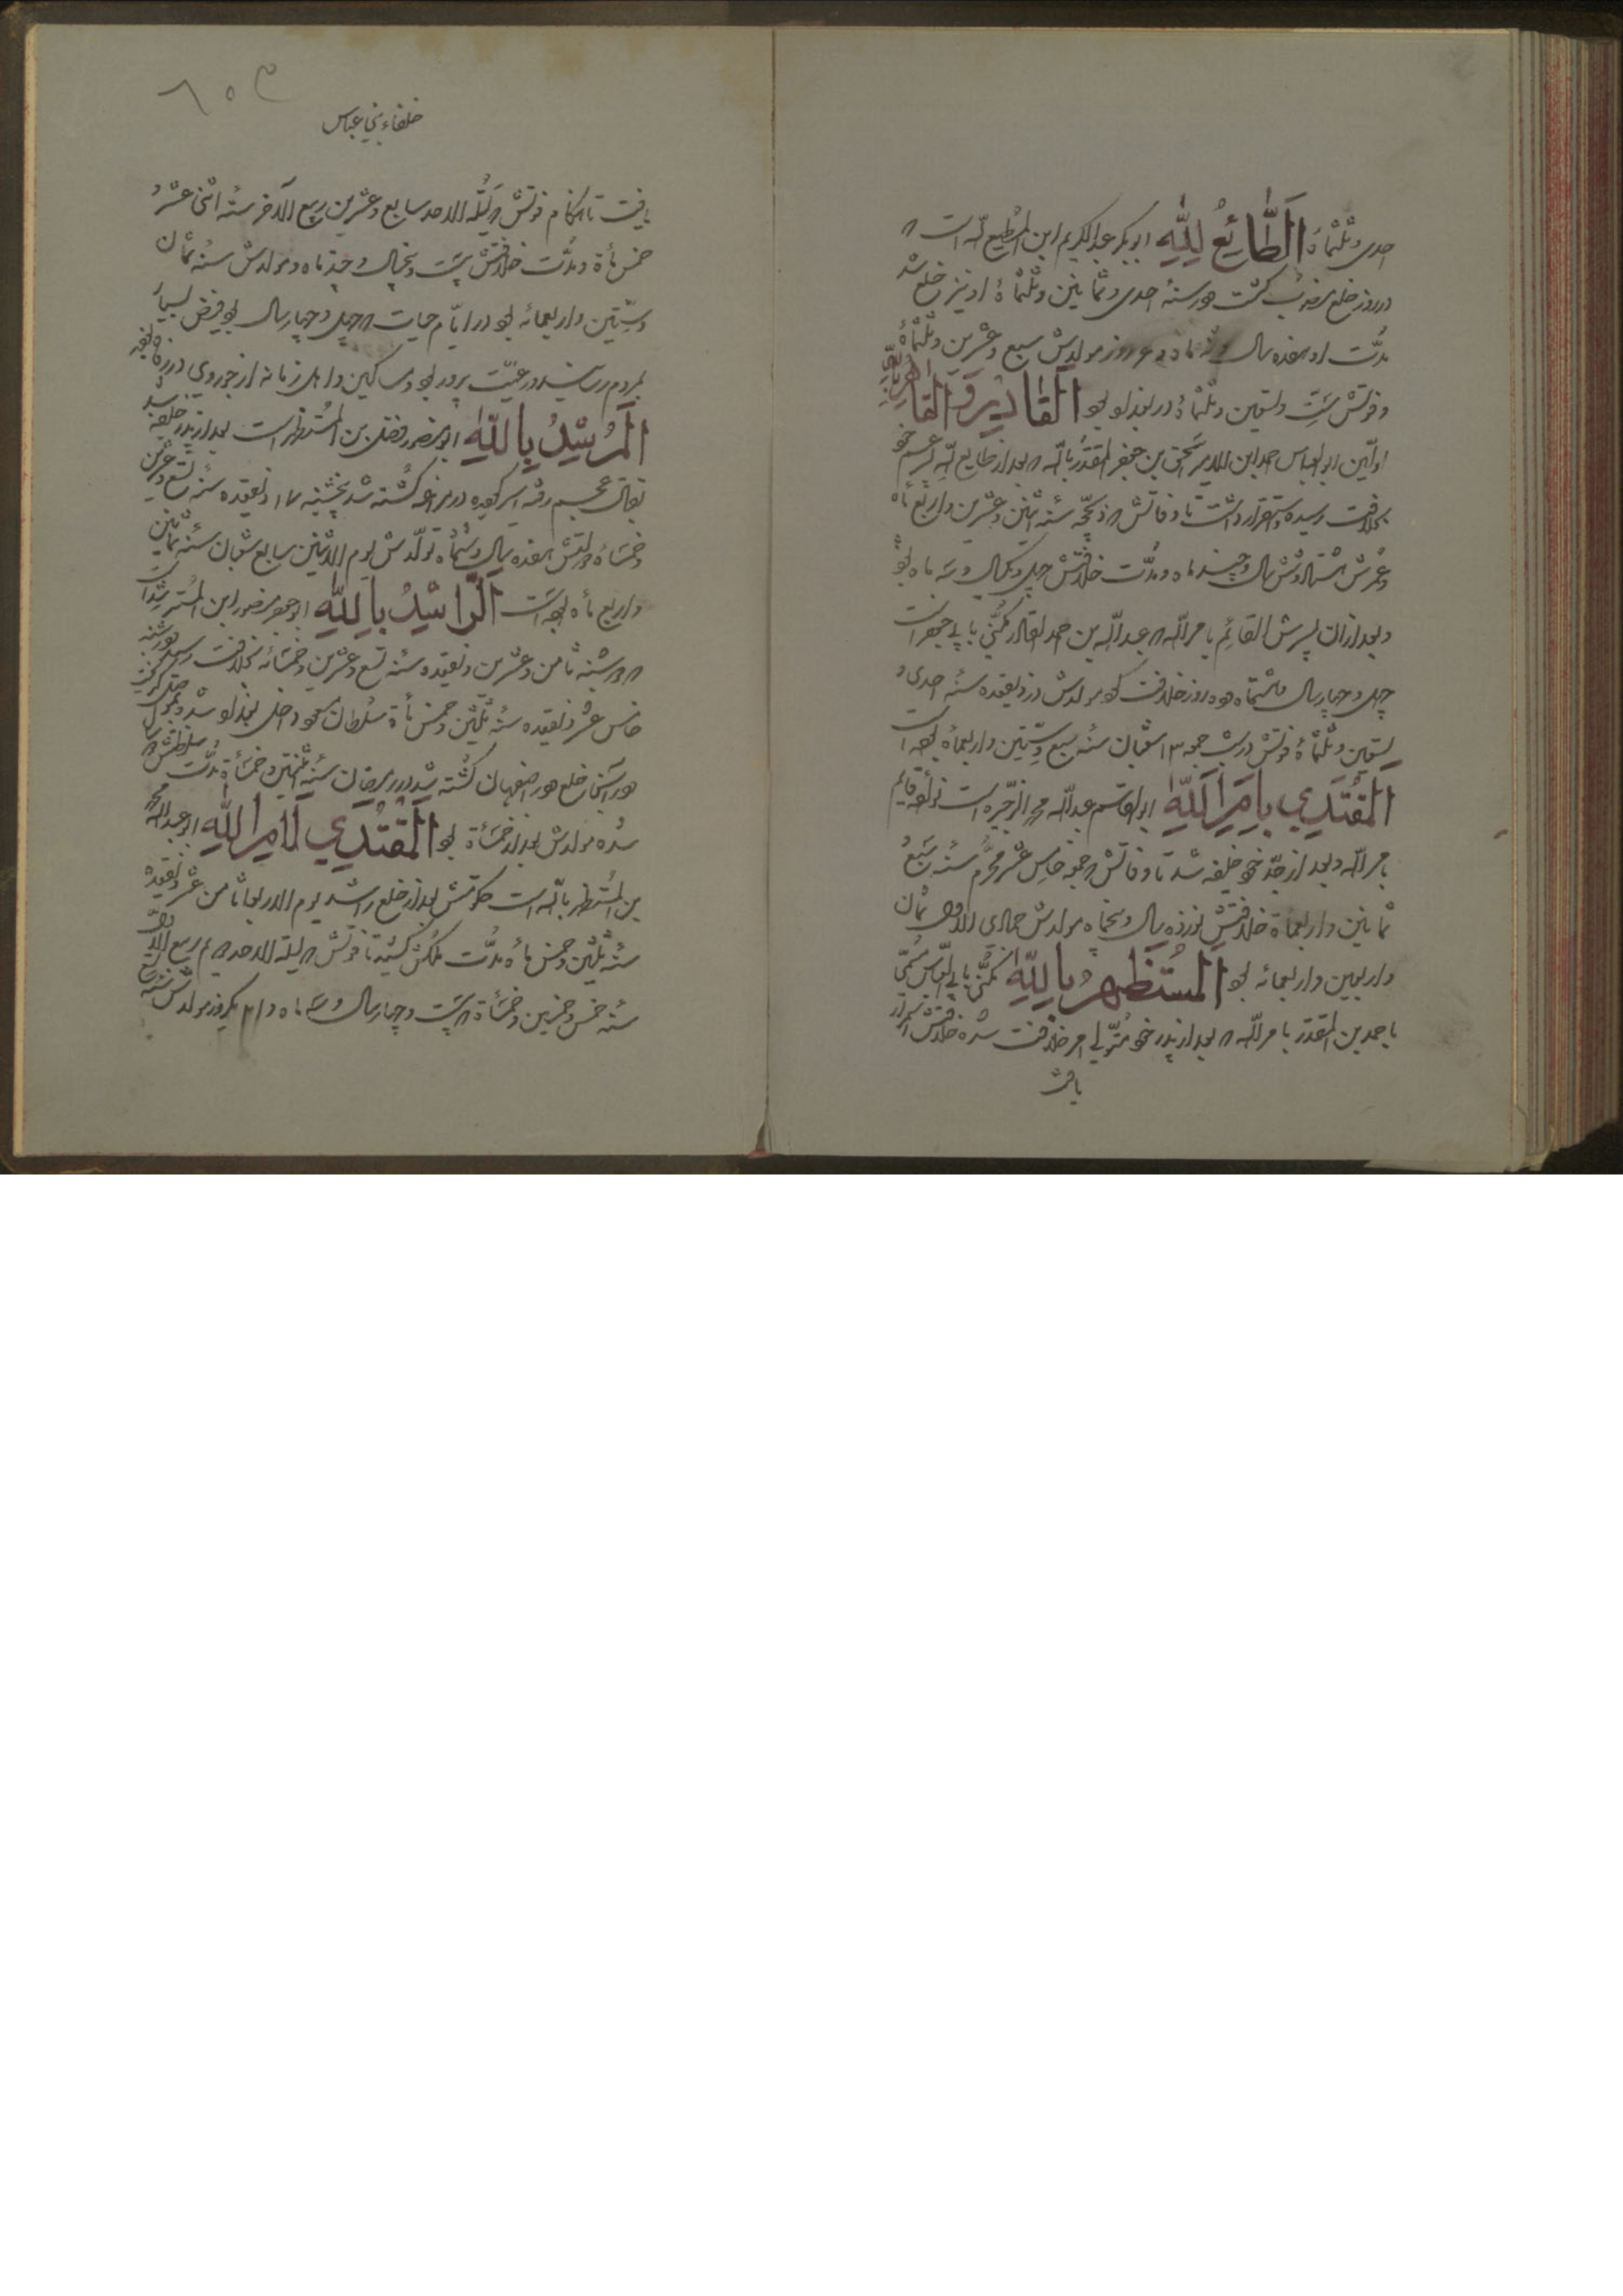 احدی و ثلثمأة الطائع لله ابوبکر عبدالکریم ابن المطیع لله است
در روز خلع پدر گشت در سنهٔ احدی و ثمانین و ثلثمأة او نیز خلع شد
مدّت او هفده سال و نه ماه و ۶ روز مولدش سبع و عشرین و ثلثمأة
و فوتش ستّ و تسعین و ثلثمأة در بغداد بود القادر و القاهر بالله
اولین ابوالعباس احمد ابن الامیر اسحق بن جعفر المقتدر بالله بعد از طایع لله ابن عم خود
بخلافت رسیده استقرار داشت تا وفاتش ذیحجه سنه اثنین و عشرین و اربع مأه
و عمرش هشتاد و شش سال و چند ماه و مدّت خلافتش چهل و یکسال و سه ماه بود
و بعد از آن پسرش القائم بامرالله عبدالله بن احمد القادر مکنّی بابی جعفر است
چهل و چهار سال و هشتماه و ده روز خلافت کرد مولدش در ذیقعده سنه احدی و
تسعین و ثلثمأة فوتش در شب جمعه ۱۳ شعبان سنه سبع و ستّین و اربعمأة بوده است
المقتدی بامر الله ابوالقاسم عبدالله محمد الذخیره است نوادهٔ قایم
بامرالله و بعد از جدّ خود خلیفه شد تا وفاتش جمعه خامس عشر محرّم سنه سبع و
ثمانین و اربعمأة خلافتش نوزده سال و پنجماه مولدش جمادی الاولی ثمان
و اربعین و اربعمائه بود المستظهر بالله مکنّی بابی العباس مسمّی
باحمد بن المقتدر بامرالله بعد از پدر خود متولی امر خلافت شده خلافتش استقرار
یافت
خلفاء بنی عباس
یافت تا هنگام فوتش لیلة الاحد سابع و عشرین ربیع الآخر سنه اثنی عشر و
خمس مأة و مدّت خلافتش بیست و پنجسال و چند ماه و مولدش سنه ثمان
و ستّین و اربعمائه بود در ایّام حیات چهل و چهار سال بود فیض بسیار
بمردم رسانید و رعیّت پرور بود و مساکین و اهل زمانه از جود وی در رفاه
المرشد بالله ابومنصور فضل بن المستظهر است بعد از پدر خلیفه شد
بقتال عجم رفته اسیر گردیده در مراغه کشته شد پنجشنبه ۱۷ ذیقعده سنه تسع و عشرین
و خمسمأة خلافتش هفده سال و ششماه تولّدش یوم الاثنین سابع شعبان سنه ثمانین
و اربع مأه بوده است الرّاشد بالله ابوجعفر منصور ابن المسترشد است
شنبه ثامن و عشرین ذیقعده سنه تسع و عشرین و خمسمائه بخلافت رسید
خامس عشر ذیقعده سنه ثلثین و خمس مأة سلطان مسعود داخل بغداد شد
در آنجا خلع در اصفهان کشته شد در رمضان سنه و خمسمأة مدّت سلطنتش
شده مولدش بعد از خمسمأة بود المقتدی لامر الله ابوعبدالله محمد
بن المستظهر بالله است حکومتش بعد از خلع راشد یوم الاربعا ثامن عشر ذیقعده
سنه ثلثین و خمس مأه مدّت ملکش کشید تا فوتش لیلة الاحد ربیع الاول
سنه خمس و خمسین و خمسمأة بیست و چهار سال و سه ماه و ۲۱ یکروز مولدش